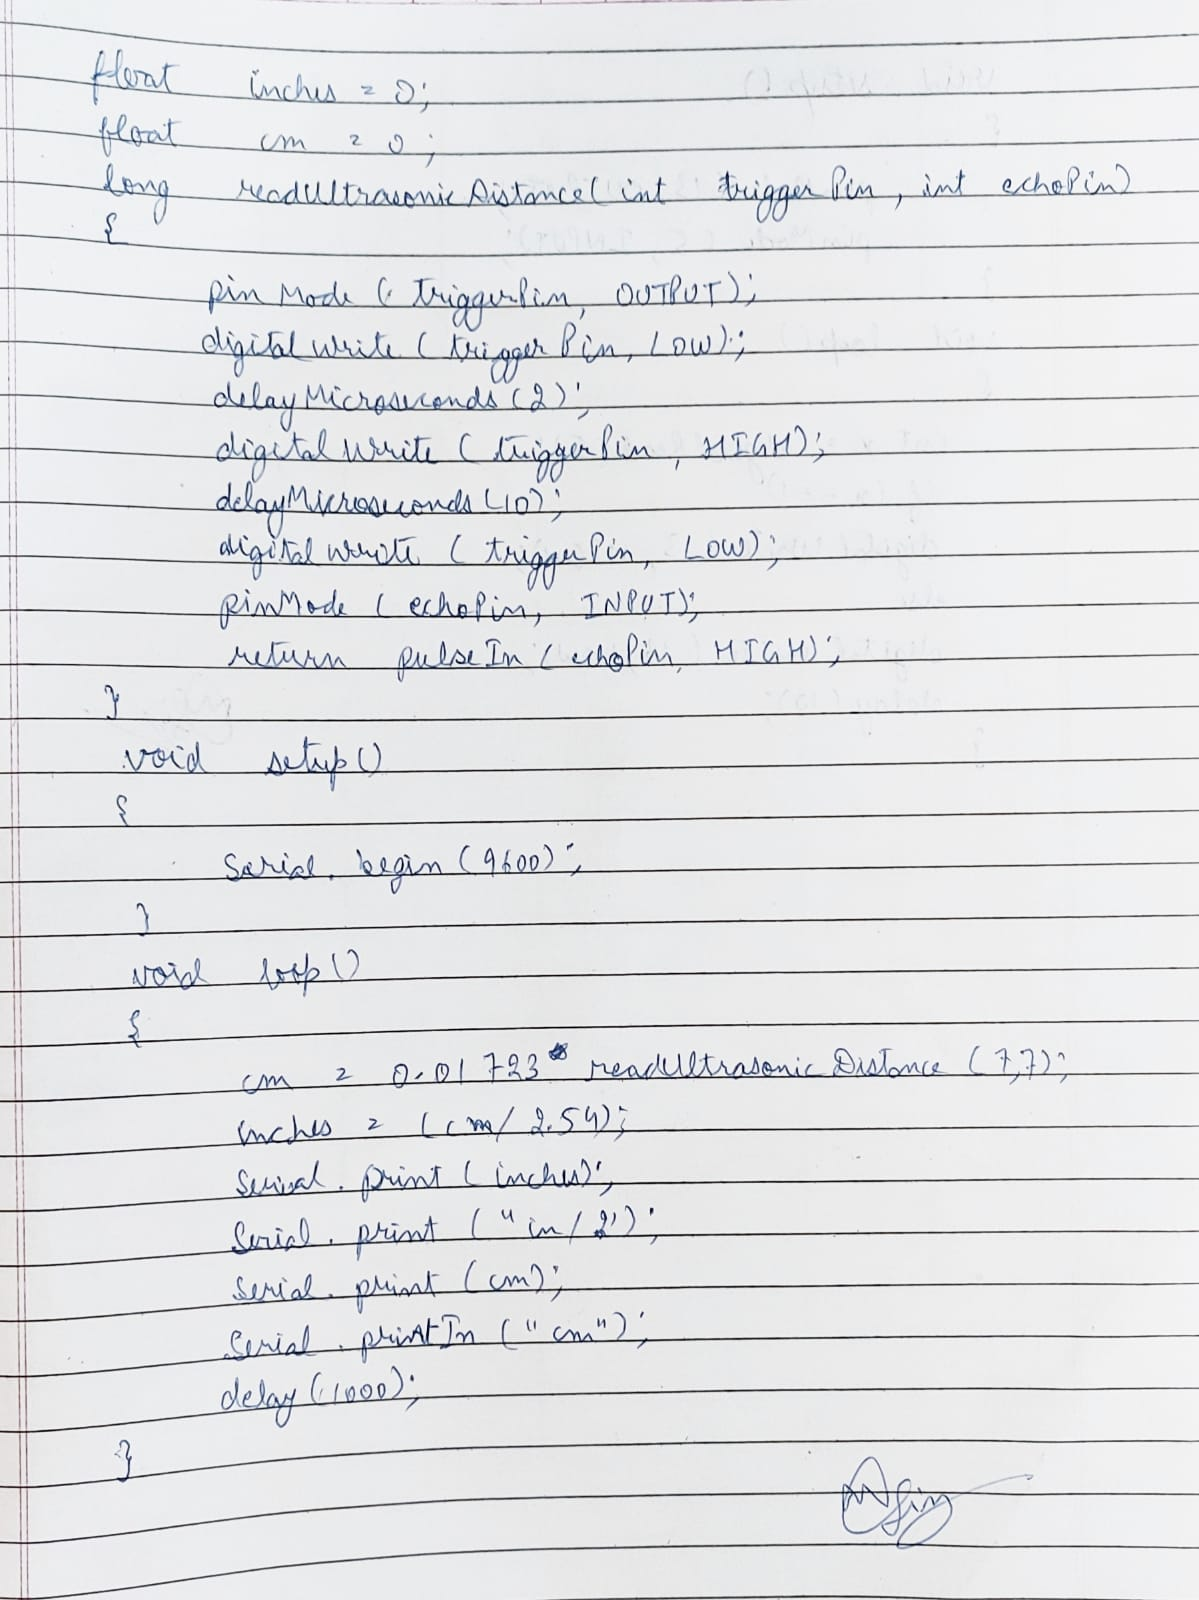 float inches = 0;
float cm = 0;
long readUltrasonicDistance(int triggerPin, int echoPin)
{
pinMode (triggerPin, OUTPUT);
digitalWrite (triggerPin, LOW);
delayMicroseconds (2);
digitalWrite (triggerPin, HIGH);
delayMicroseconds (10);
digitalWrite (triggerPin, LOW);
pinMode (echoPin, INPUT);
return pulseIn (echoPin, HIGH);
}
void setup()
{
Serial. begin (9600);
}
void loop()
{
cm = 0.01723 * readUltrasonicDistance (7,7);
inches = (cm/2.54);
Serial. print (inches);
Serial. print ("in/2');
Serial. print (cm);
Serial. printIn ("cm");
delay (1000);
}